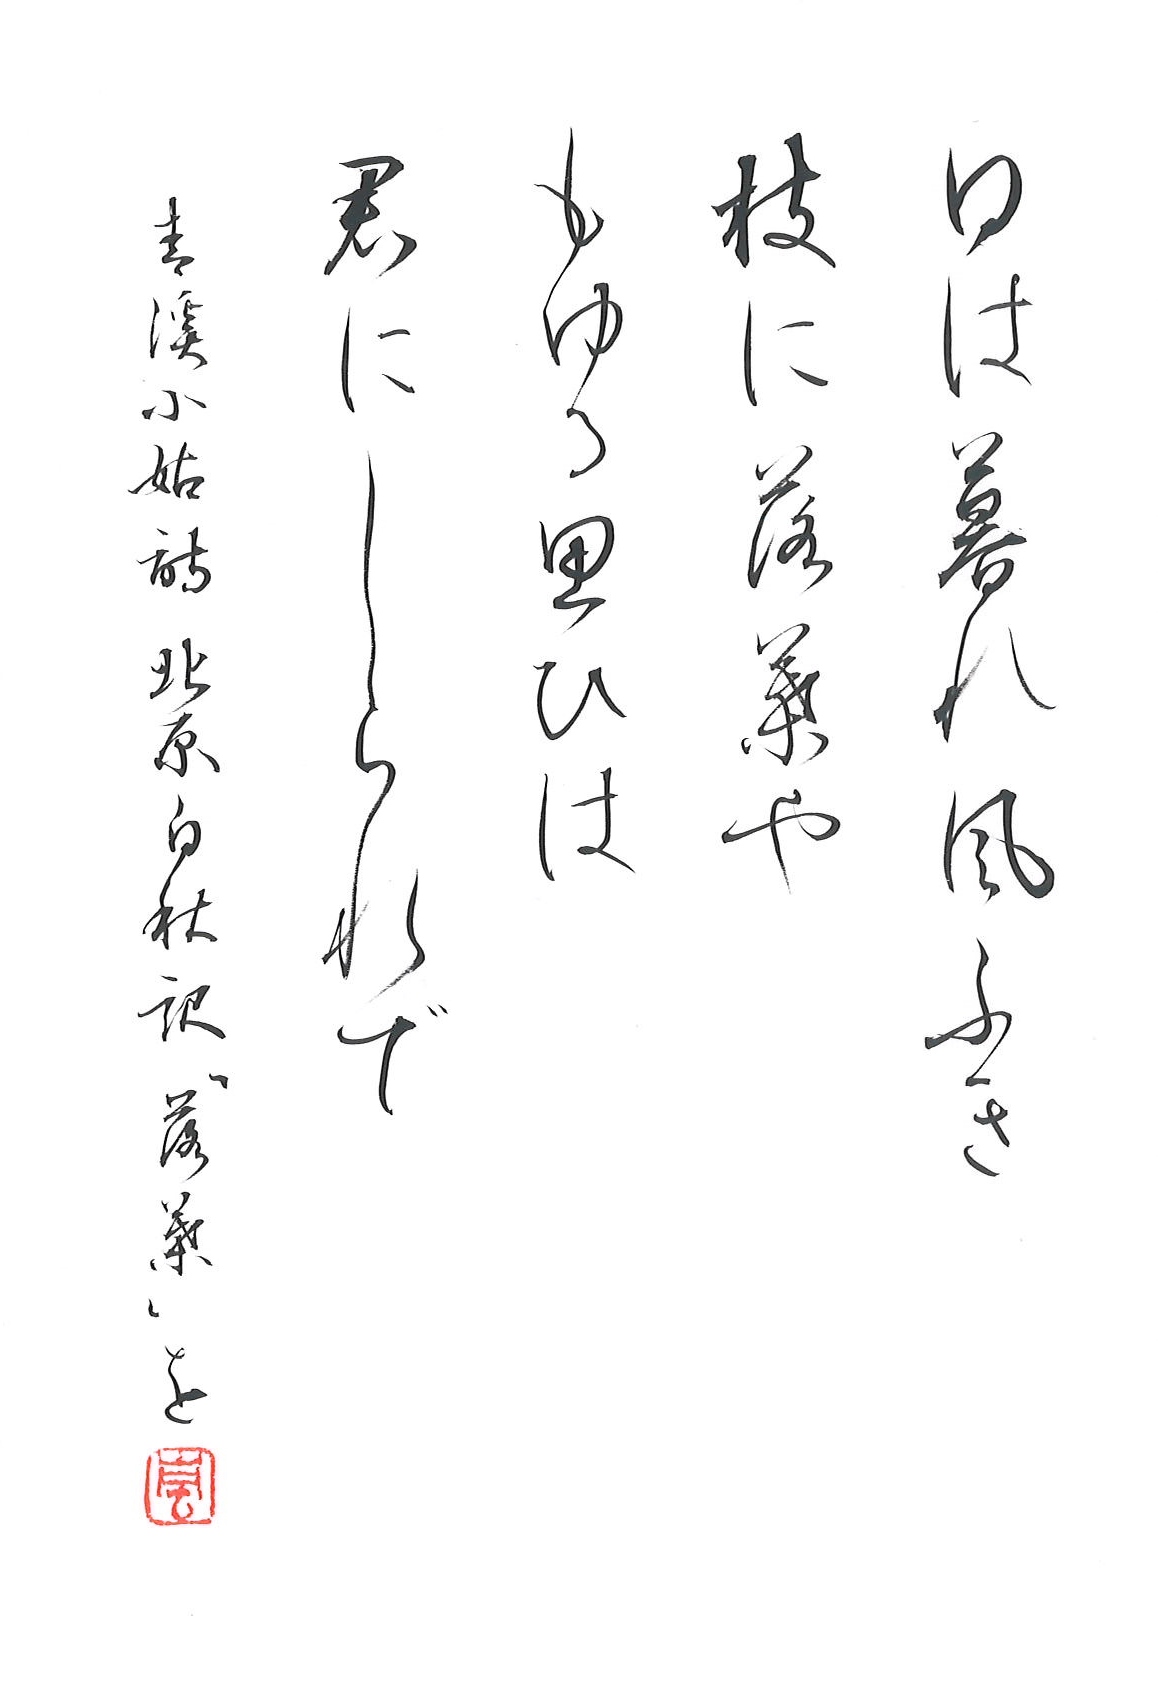 日は暮れ風ふき
枝に落葉や
もゆる思ひは
君にしられで
青溪小姑詩 北原白秋訳「落葉」を